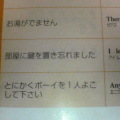 お湯がでません
Ther
部屋に鍵を置き忘れました
I le
とにかくボーイを1人よこ
して下さい
Any